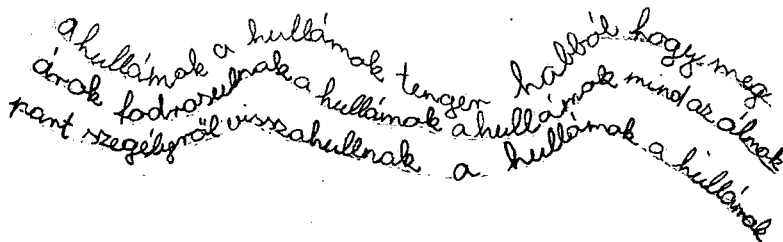 a hullámok a hullámok tengeri habból hogy meg
árok fodrosulnak a hullámok a hullámok mind az álmok
part szegélyről visszahullnak a hullámok a hullámok